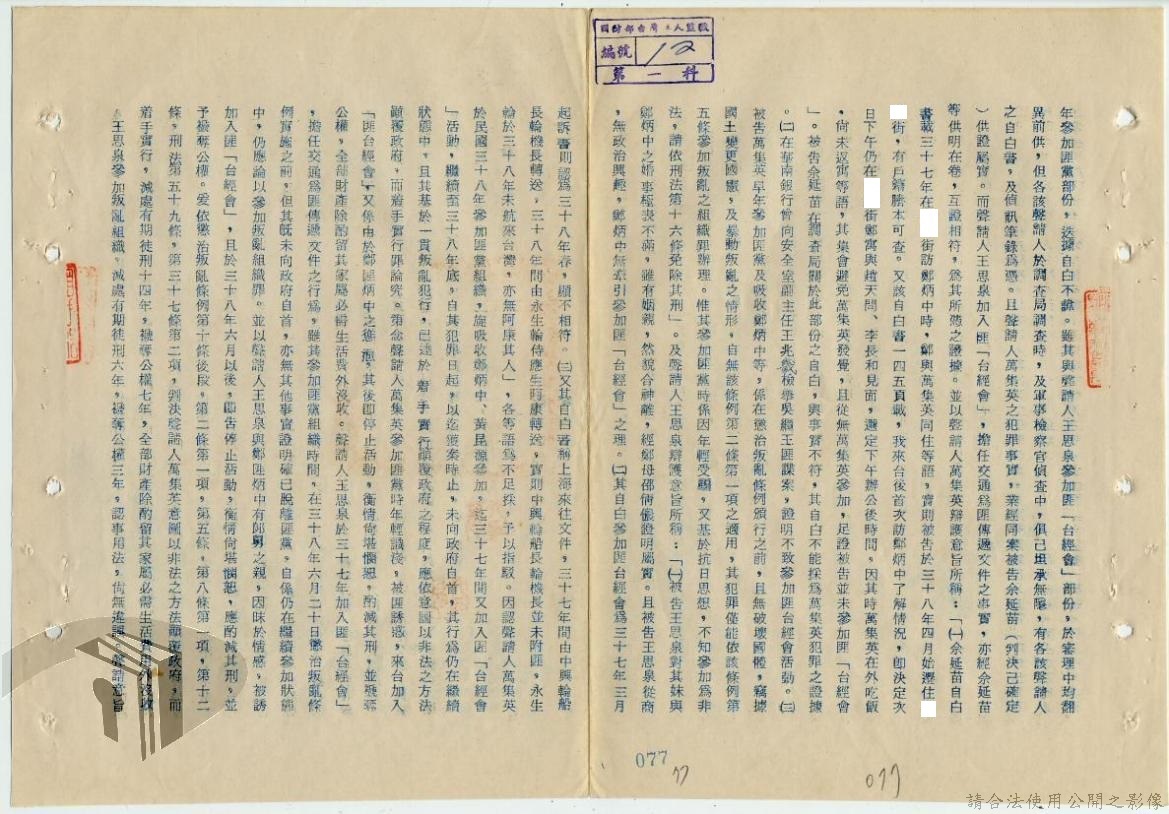 編號 12
第一科
年參加匪黨部份,迭據自白不諱。雖其與聲請人王思泉參加匪「台經會」部份,於審理中均翻
異前供,但各該聲請人於調查局調查時,及軍事檢察官偵查中,俱已坦承無隱,有各該聲請人
之自白書,及偵訊筆錄為憑。且聲請人萬集英之犯罪事實,業經同案被告余延苗(判決已確定
)供證屬實。而聲請人王思泉加入匪「台經會」,擔任交通為匪傳遞文件之事實,亦經余延苗
等供明在卷,互證相符,為其所憑之證據。並以聲請人萬集英辯護意旨所稱:「㈠余延苗自白
書載三十七年在 街訪鄭炳中時,鄭與萬集英同住等語,實則被告於三十八年四月始遷住
街,有戶籍謄本可查。又該自白書一四五頁載,我來台後首次訪鄭炳中了解情況,即決定次
日下午仍在 街鄭寓與趙天問、李長和見面,選定下午辦公後時間,因其時萬集英在外吃飯
,尚未返寓等語,其集會避免萬集英發覺,且從無萬集英參加,足證被告並未參加匪「台經會
」。被告余延苗在調查局關於此部份之自白,與事實不符,其自白不能採為萬集英犯罪之證據
。㈡在華南銀行曾向安全室副主任王兆檢舉吳繼王匪諜案,證明不致參加匪台經會活動。㈢
被告萬集英早年參加匪黨及吸收鄭炳中等,係在懲治叛亂條例頒行之前,且無破壞國體,竊據
國土變更國憲,及暴動叛亂之情形,自無該條例第二條第一項之適用,其犯罪僅能依該條例第
五條參加叛亂之組織罪辦理。惟其參加匪黨時係因年輕受騙,又基於抗日思想,不知參加為非
法,請依刑法第十六條免除其刑」。及聲請人王思泉辯護意旨所稱:「㈠被告王思泉對其妹與
鄭炳中之婚事極表不滿,雖有姻親,然貌合神離,經鄭母邵倩儂證明屬實。且被告王思泉從商
,無政治興趣,鄭炳中無牽引參加匪「台經會」之理。㈡其自白參加匪台經會為三十七年三月
起訴書則認為三十八年春,顯不相符。㈢又其自白書稱上海來往文件,三十七年間由中興輪船
長輪機長轉送,三十八年間由永生輪侍應生阿康轉送,實則中興輪船長輪機長並未附匪,永生
輪於三十八年未航來台灣,亦無阿康其人」,各等語為不足採,予以指駁。因認聲請人萬集英
於民國三十八年參加匪黨組織,旋吸收鄭炳中、黃昆源參加,迄三十七年間又加入匪「台經會
」活動,繼續至三十八年底,自其犯罪日起,以迄獲案時止,未向政府自首,其行為仍在繼續
狀態中,且其基於一貫叛亂犯行,已達於着手實行顛覆政府之程度,應依意圖以非法之方法
顛覆政府,而着手實行罪論究。第念聲請人萬集英參加匪黨時年輕識淺,被匪誘惑,來台加入
「匪台經會」,又係由於鄭匪炳中之慫恿,其後即停止活動,衡情尚堪憫恕,酌減其刑,並褫奪
公權,全部財產除酌留其家屬必需生活費外沒收。聲請人王思泉於三十七年加入匪「台經會」
,擔任交通為匪傳遞文件之行為,雖其參加匪黨組織時間,在三十八年六月二十日懲治叛亂條
例實施之前,但其既未向政府自首,亦無其他事實證明確已脫離匪黨。自係仍在繼續參加狀態
中,仍應論以參加叛亂組織罪。並以聲請人王思泉與鄭匪炳中有郎舅之親,因昧於情感,被誘
加入匪「台經會」,且於三十八年六月以後,即告停止活動,衡情尚堪憫恕,應酌減其刑,並
予褫奪公權。爰依懲治叛亂條例第十條後段,第二條第一項,第五條,第八條第一項,第十二
條,刑法第五十九條,第三十七條第二項,判決聲請人萬集英意圖以非法之方法顛覆政府,而
着手實行,減處有期徒刑十四年,褫奪公權七年,全部財產除酌留其家屬必需生活費用外沒收
。王思泉參加叛亂組織。減處有期徒刑六年,褫奪公權三年,認事用法,尚無違誤。聲請意旨
077
77
077
請合法使用公開之影像